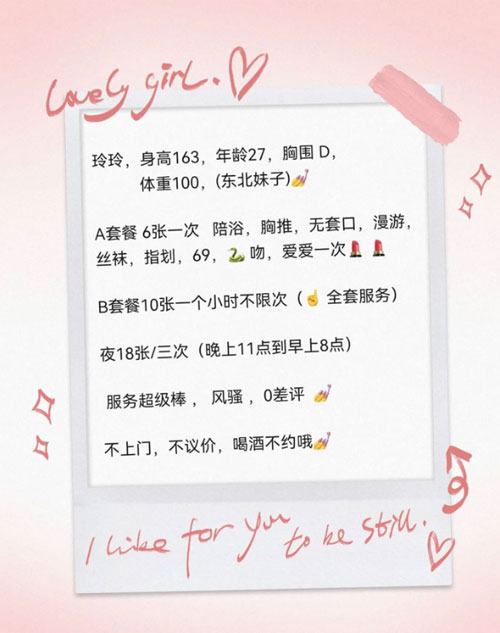 Lovely girl.
玲玲，身高163，年龄27，胸围 D，
体重100，(东北妹子)💅
A套餐 6张一次 陪浴，胸推，无套口，漫游，
丝袜，指划，69，🐍 吻，爱爱一次💄 💄
B套餐10张一个小时不限次（☝ 全套服务）
夜18张/三次（晚上11点到早上8点）
服务超级棒 ， 风骚 ，0差评 💅
不上门，不议价，喝酒不约哦💅
I like for you to be still.